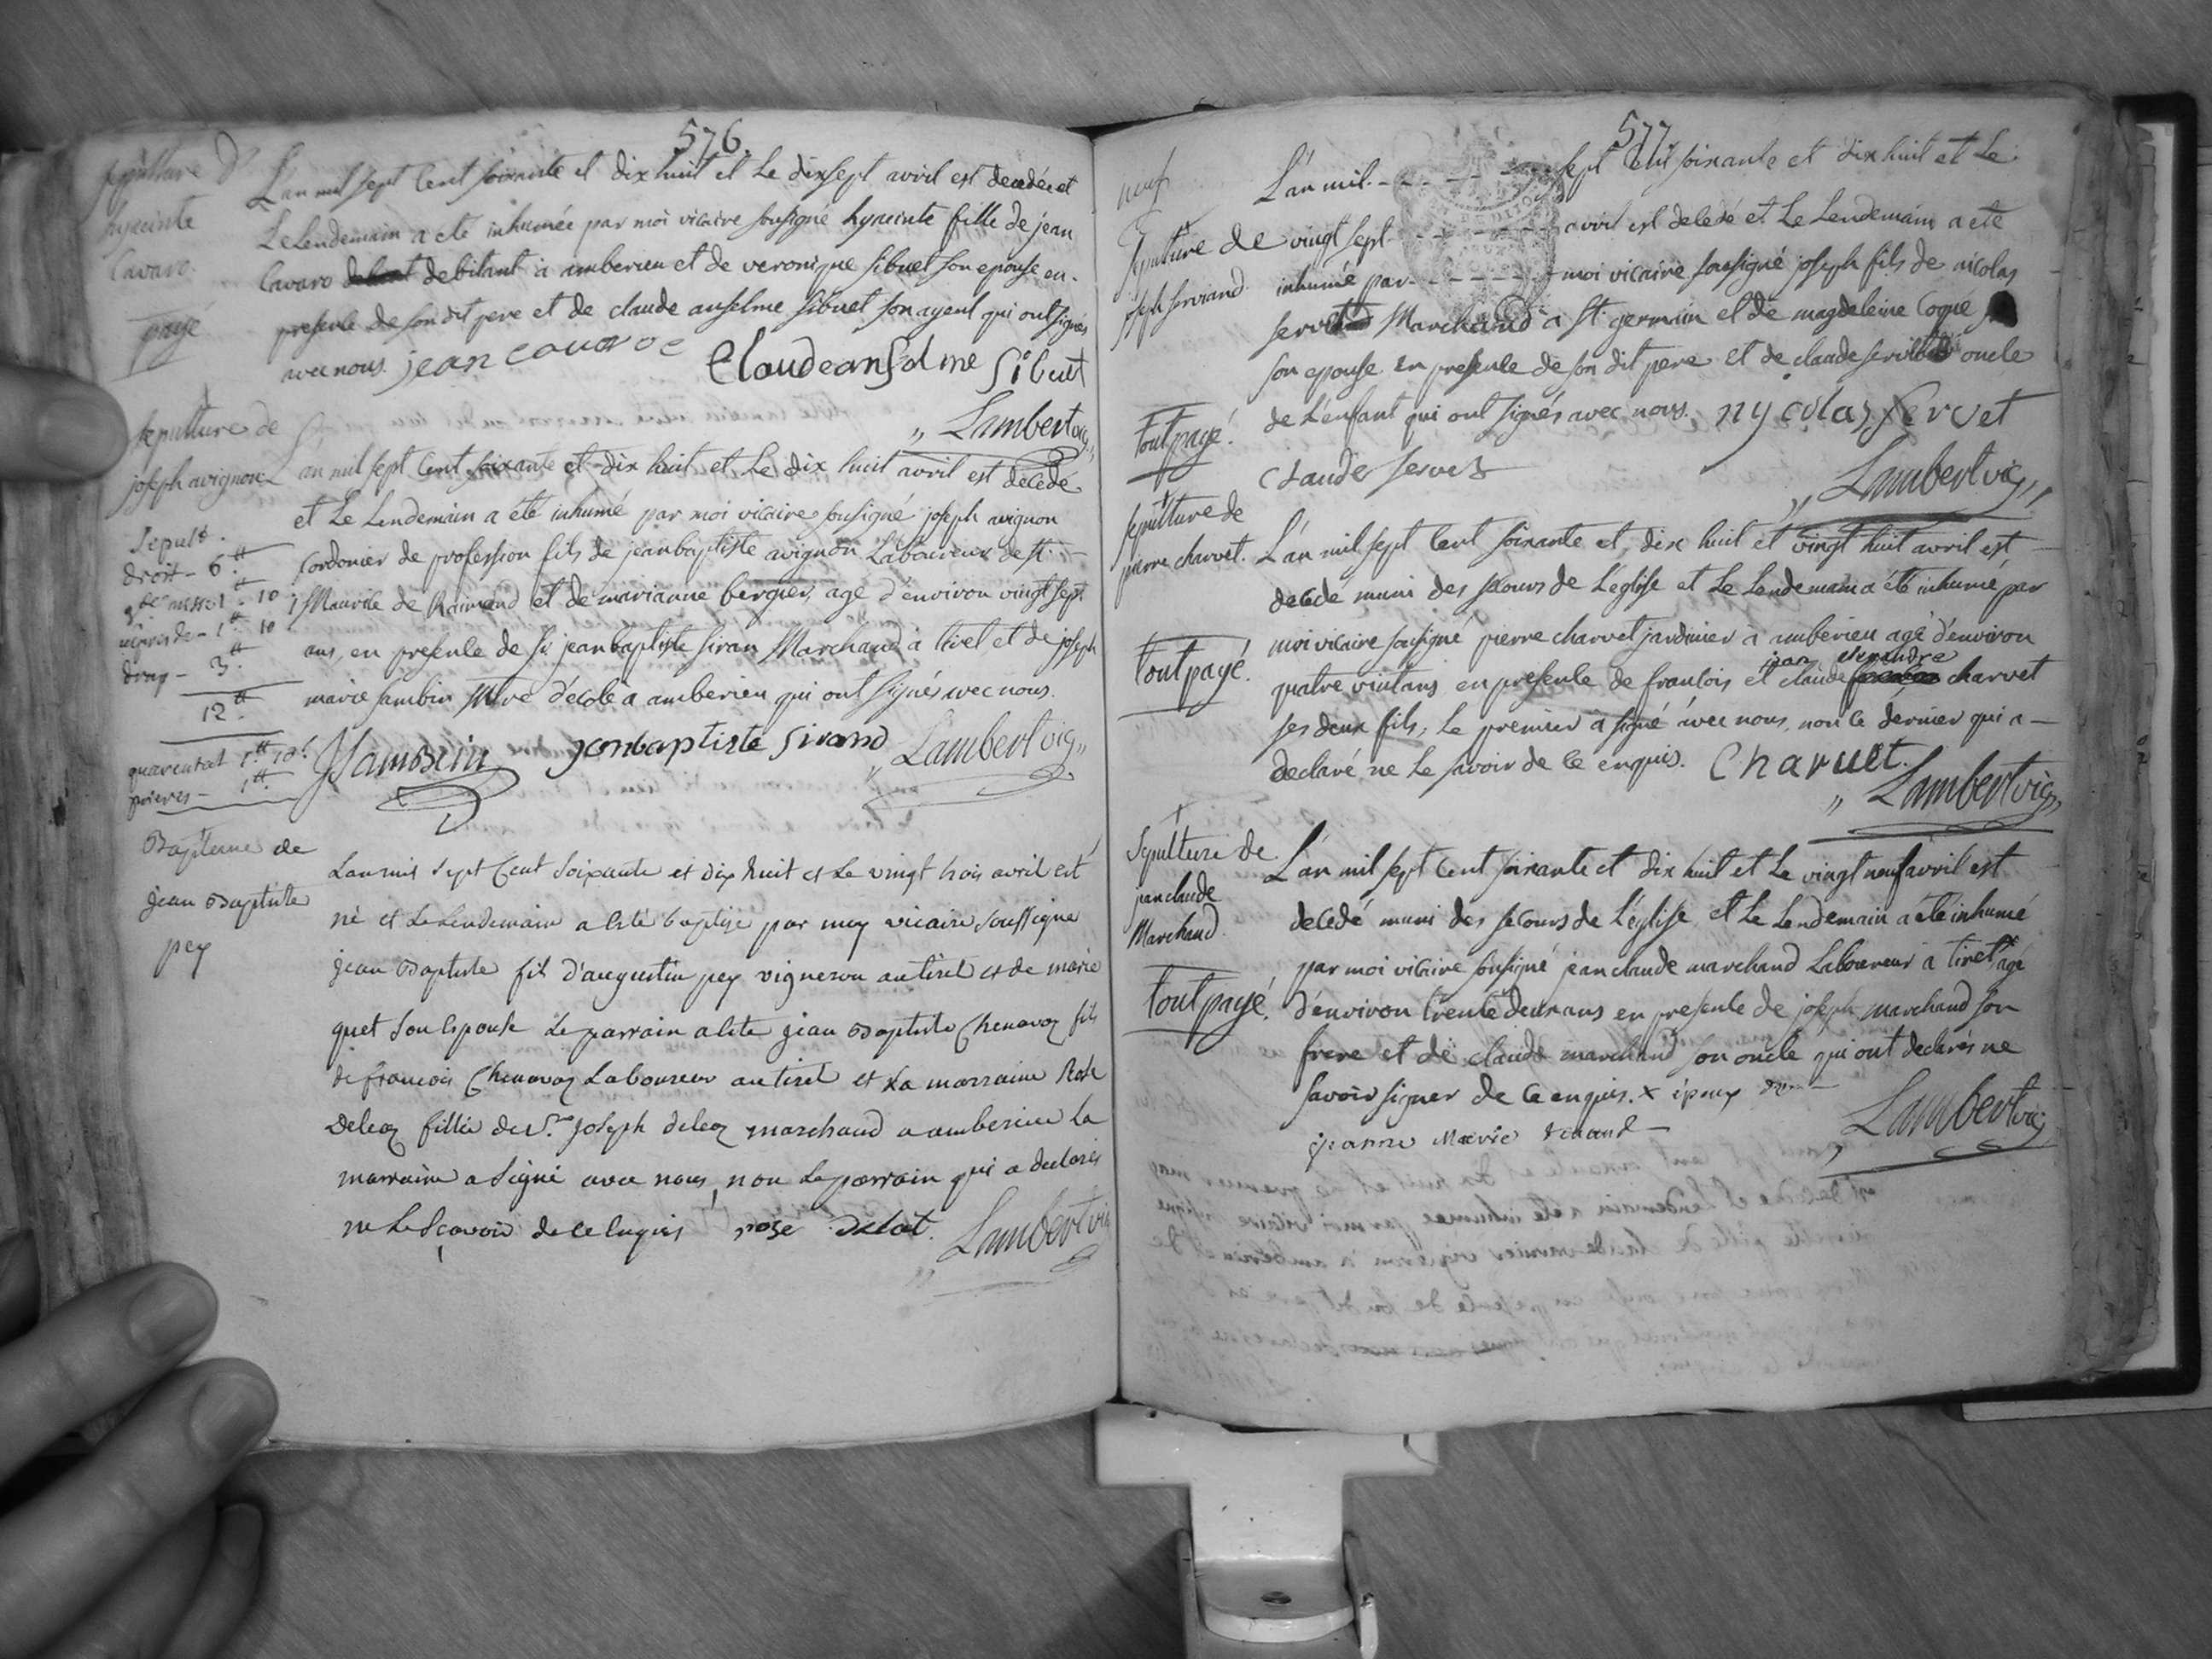 576.
sepulture d'
hyacinte
Cavaro.
payé
L'an mil sept Cent soixante et dix huit et Le dix sept avril est decedée et
Le Lendemain a eté inhumée par moi vicaire sousigné hyacinte fille de jean
Cavaro debitant à amberieu et de veronique sibuet son epouse en
presence de son dit pere et de claude anselme sibuet son ayeul qui ont signés
avec nous. jean Couaroe Claude anselme Sibuet
Lambert vic
sepulture de
joseph avignon
Sepult.
droit - 6tt
gde messe 1tt 10
drap - 3tt
12tt
quarentat 1tt 10s
prieres - 1tt
L'an mil sept Cent soixante et dix huit et Le dix huit avril est décédé
et Le Lendemain a été inhumé par moi vicaire sousigné joseph avignon
Cordonier de profession fils de jean baptiste avignon Laboureur de st.
Maurice de Raimend et de marianne berger, agé d'environ vingt sept
ans, en presence de sr jean baptiste siran Marchand à tiret et de joseph
marie sambin Mtre d'école à amberieu qui ont signés avec nous.
JSambin jeanbaptiste Sirand Lambert vic
Bapteme de
jean Baptiste
pey
L'an mil sept Cent Soixante et dix huit et Le vingt trois avril est
né et Le Lendemain a eté baptisé par moy vicaire soussigné
jean Baptiste fils d'augustin pey vigneron au tiret et de marie
quet son Epouse Le parrain a eté jean Baptiste Chenavoz fils
de francois Chenavoz Laboureur au tiret et La marraine Rose
Deleaz fille de Sr. joseph deleaz marchand a amberieu La
marraine a signé avec nous, non Le parrain qui a declarés
ne Le Scavoir de ce Enquis rose Delat. Lambert vic
577
L'an mil sept Cent soixante et dix huit et Le
Sepulture de
joseph serviand
vingt sept avril est decedé et Le Lendemain a eté
inhumé par moi vicaire sousigné joseph fils de nicolas
Marchand à St. germain et de magdeleine Coque
son epouse en presence de son dit pere et de claude oncle
de L'enfant qui ont signés avec nous. nycolas servet
tout payé.
Claude servet
Lambert vic
sepulture de
pierre charvet.
L'an mil sept Cent soixante et dix huit et vingt huit avril est
decedé muni des secours de L'église et Le Lendemain a été inhumé par
moi vicaire sousigné pierre charvet jardinier à amberieu agé d'environ
tout payé.
quatre vint ans en presence de francois et claude jean charvet
ses deux fils, Le premier a signé avec nous, non le dernier qui a
declaré ne Le savoir de ce enquis. Charuet.
Lambert vic
Sepulture de
jean claude
Marchand.
tout payé.
L'an mil sept Cent soixante et dix huit et Le vingt neuf avril est
decedé muni des secours de L'église et Le Lendemain a été inhumé
par moi vicaire sousigné jean claude marchand Laboureur à tiret agé
d'environ trente deux ans en presence de joseph marchand son
frere et de claude marchand son oncle qui ont declarés ne
savoir signer de ce enquis. x époux de
jeanne Marie
Lambert vic